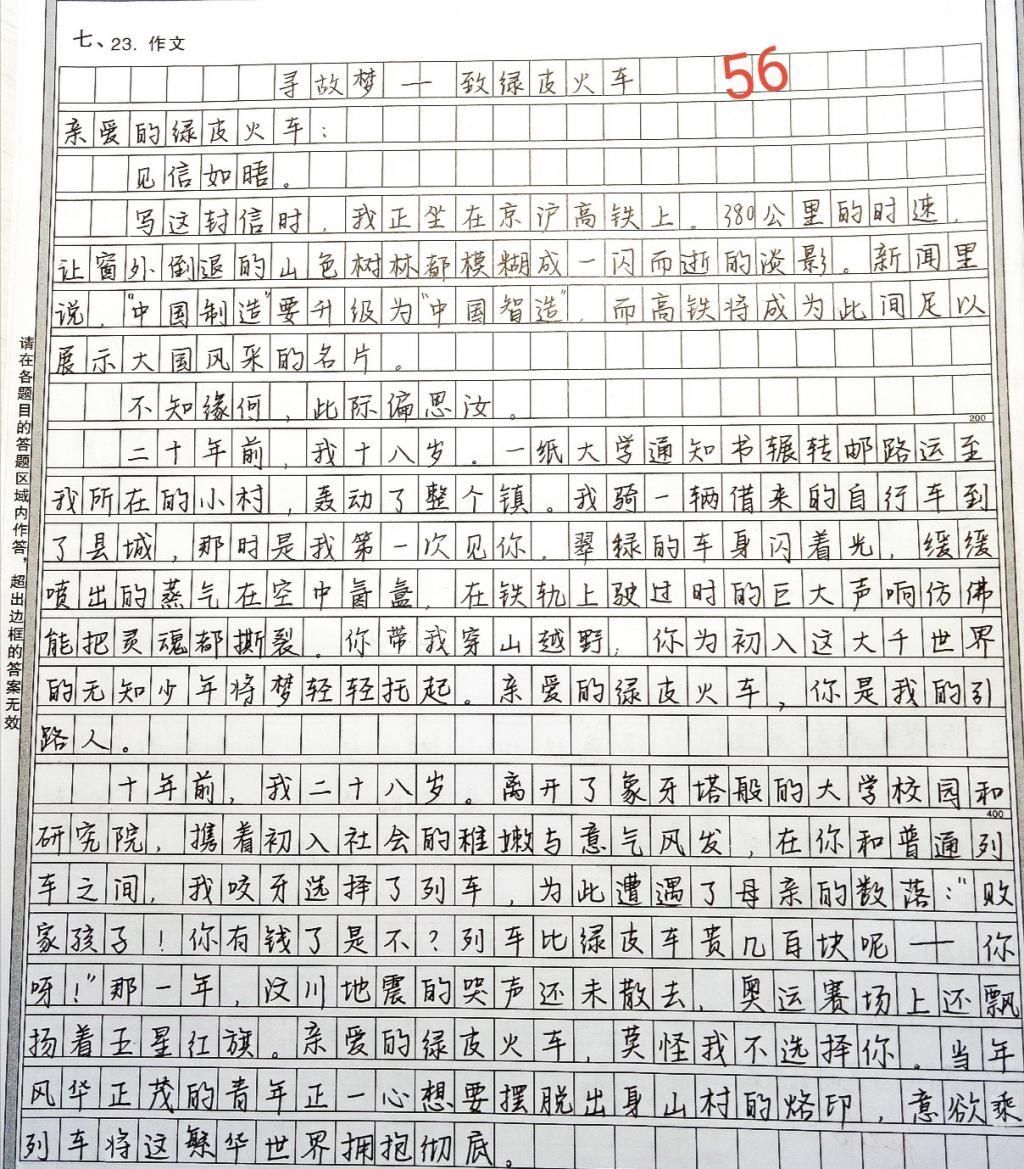 七、23. 作文
寻故梦——致绿皮火车
56
亲爱的绿皮火车：
见信如晤。
写这封信时，我正坐在京沪高铁上。380公里的时速，
让窗外倒退的山色树林都模糊成一闪而逝的淡影。新闻里
说，“中国制造”要升级为“中国智造”，而高铁将成为此间足以
展示大国风采的名片。
不知缘何，此际偏思汝。
200
二十年前，我十八岁。一纸大学通知书辗转邮路运至
我所在的小村，轰动了整个镇。我骑一辆借来的自行车到
了县城，那时是我第一次见你。翠绿的车身闪着光，缓缓
喷出的蒸气在空中氤氲，在铁轨上驶过时的巨大声响仿佛
能把灵魂都撕裂。你带我穿山越野，你为初入这大千世界
的无知少年将梦轻轻托起。亲爱的绿皮火车，你是我的引
路人。
十年前，我二十八岁。离开了象牙塔般的大学校园和
400
研究院，携着初入社会的稚嫩与意气风发，在你和普通列
车之间，我咬牙选择了列车，为此遭遇了母亲的数落：“败
家孩子！你有钱了是不？列车比绿皮车贵几百块呢——你
呀！”那一年，汶川地震的哭声还未散去，奥运赛场上还飘
扬着五星红旗。亲爱的绿皮火车，莫怪我不选择你。当年
风华正茂的青年正一心想要摆脱出身山村的烙印，意欲乘
列车将这繁华世界拥抱彻底。
请在各题目的答题区域内作答，超出边框的答案无效